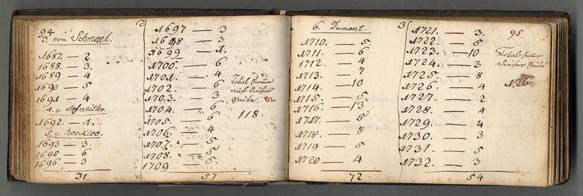 94
3. von Schmael.
1687. — 2
1688. — 3
1689 — 4
1690 — 5
1691 — 4
4. v. Hofweiller
1692. — 1.
1693 — 3
1695 — 6
1696 — 3
31
2
1697 — 3
1698 — 3
1699 — 1.
1700. — 6
1701. — 4
1702. — 6
1703. — 3
1704. — 6
1705. — 6
1706. — 4
1707. — 5
1708. — 5
1709. — 5
57
118.
6. Dumont.
1710. — 5
1711. — 6
1712. — 4
1713 — 7
1714 — 10
1715 — 5
1716 — 13
1717. — 5
1718. — 8
1719 — 5
1720 — 4
72
3
1721. — 3.
1722. — 5
1723. — 10
1724. — 3
1725 — 8
1726. — 4
1727. — 2
1728. — 4
1729. — 4
1730. — 3
1731. — 5
1732. — 3
54
95
126.